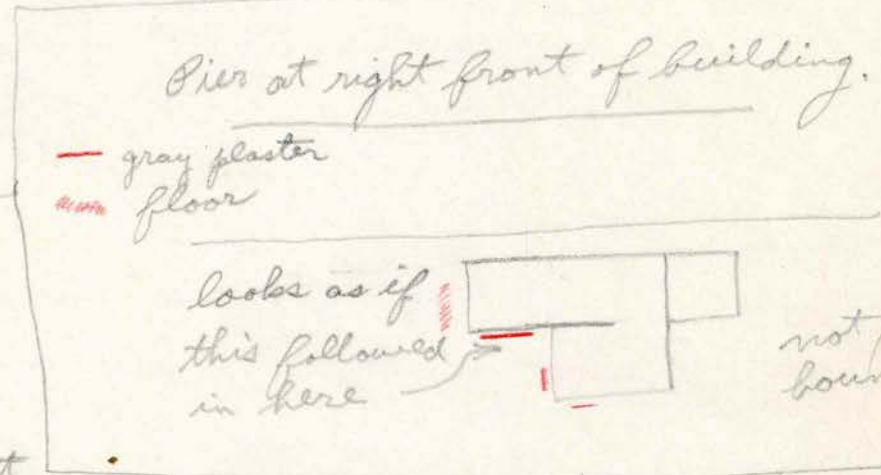 Pier at right front of building.
gray plaster
floor
looks as if
this followed
in here
not